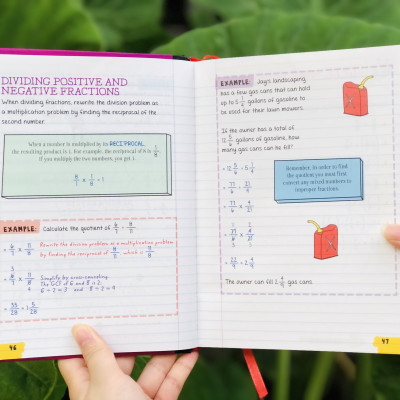 DIVIDING POSITIVE AND
NEGATIVE FRACTIONS
When dividing fractions, rewrite the division problem as
a multiplication problem by finding the reciprocal of the
second number.
When a number is multiplied by its RECIPROCAL,
the resulting product is 1. For example, the reciprocal of 8 is 1/8.
If you multiply the two numbers, you get 1.
8/1 × 1/8 = 1
EXAMPLE: Calculate the quotient of
Rewrite the division problem as a multiplication problem
by finding the reciprocal of
which is
Simplify by cross-canceling.
The GCF of 6 and 8 = 2.
6 ÷ 2 = 3 and 8 ÷ 2 = 4
= 33/28 = 1 5/28
46
EXAMPLE: Jay's landscaping
has a few gas cans that can hold
up to 5 1/4 gallons of gasoline to
be used for their lawn mowers.
If the owner has a total of
12 5/6 gallons of gasoline, how
many gas cans can he fill?
= 12 5/6 ÷ 5 1/4
= 77/6 ÷ 21/4
= 77/6 × 4/21
= 22/9 = 2 4/9
Remember, in order to find
the quotient you must first
convert any mixed numbers to
improper fractions.
The owner can fill 2 4/9 gas cans.
47